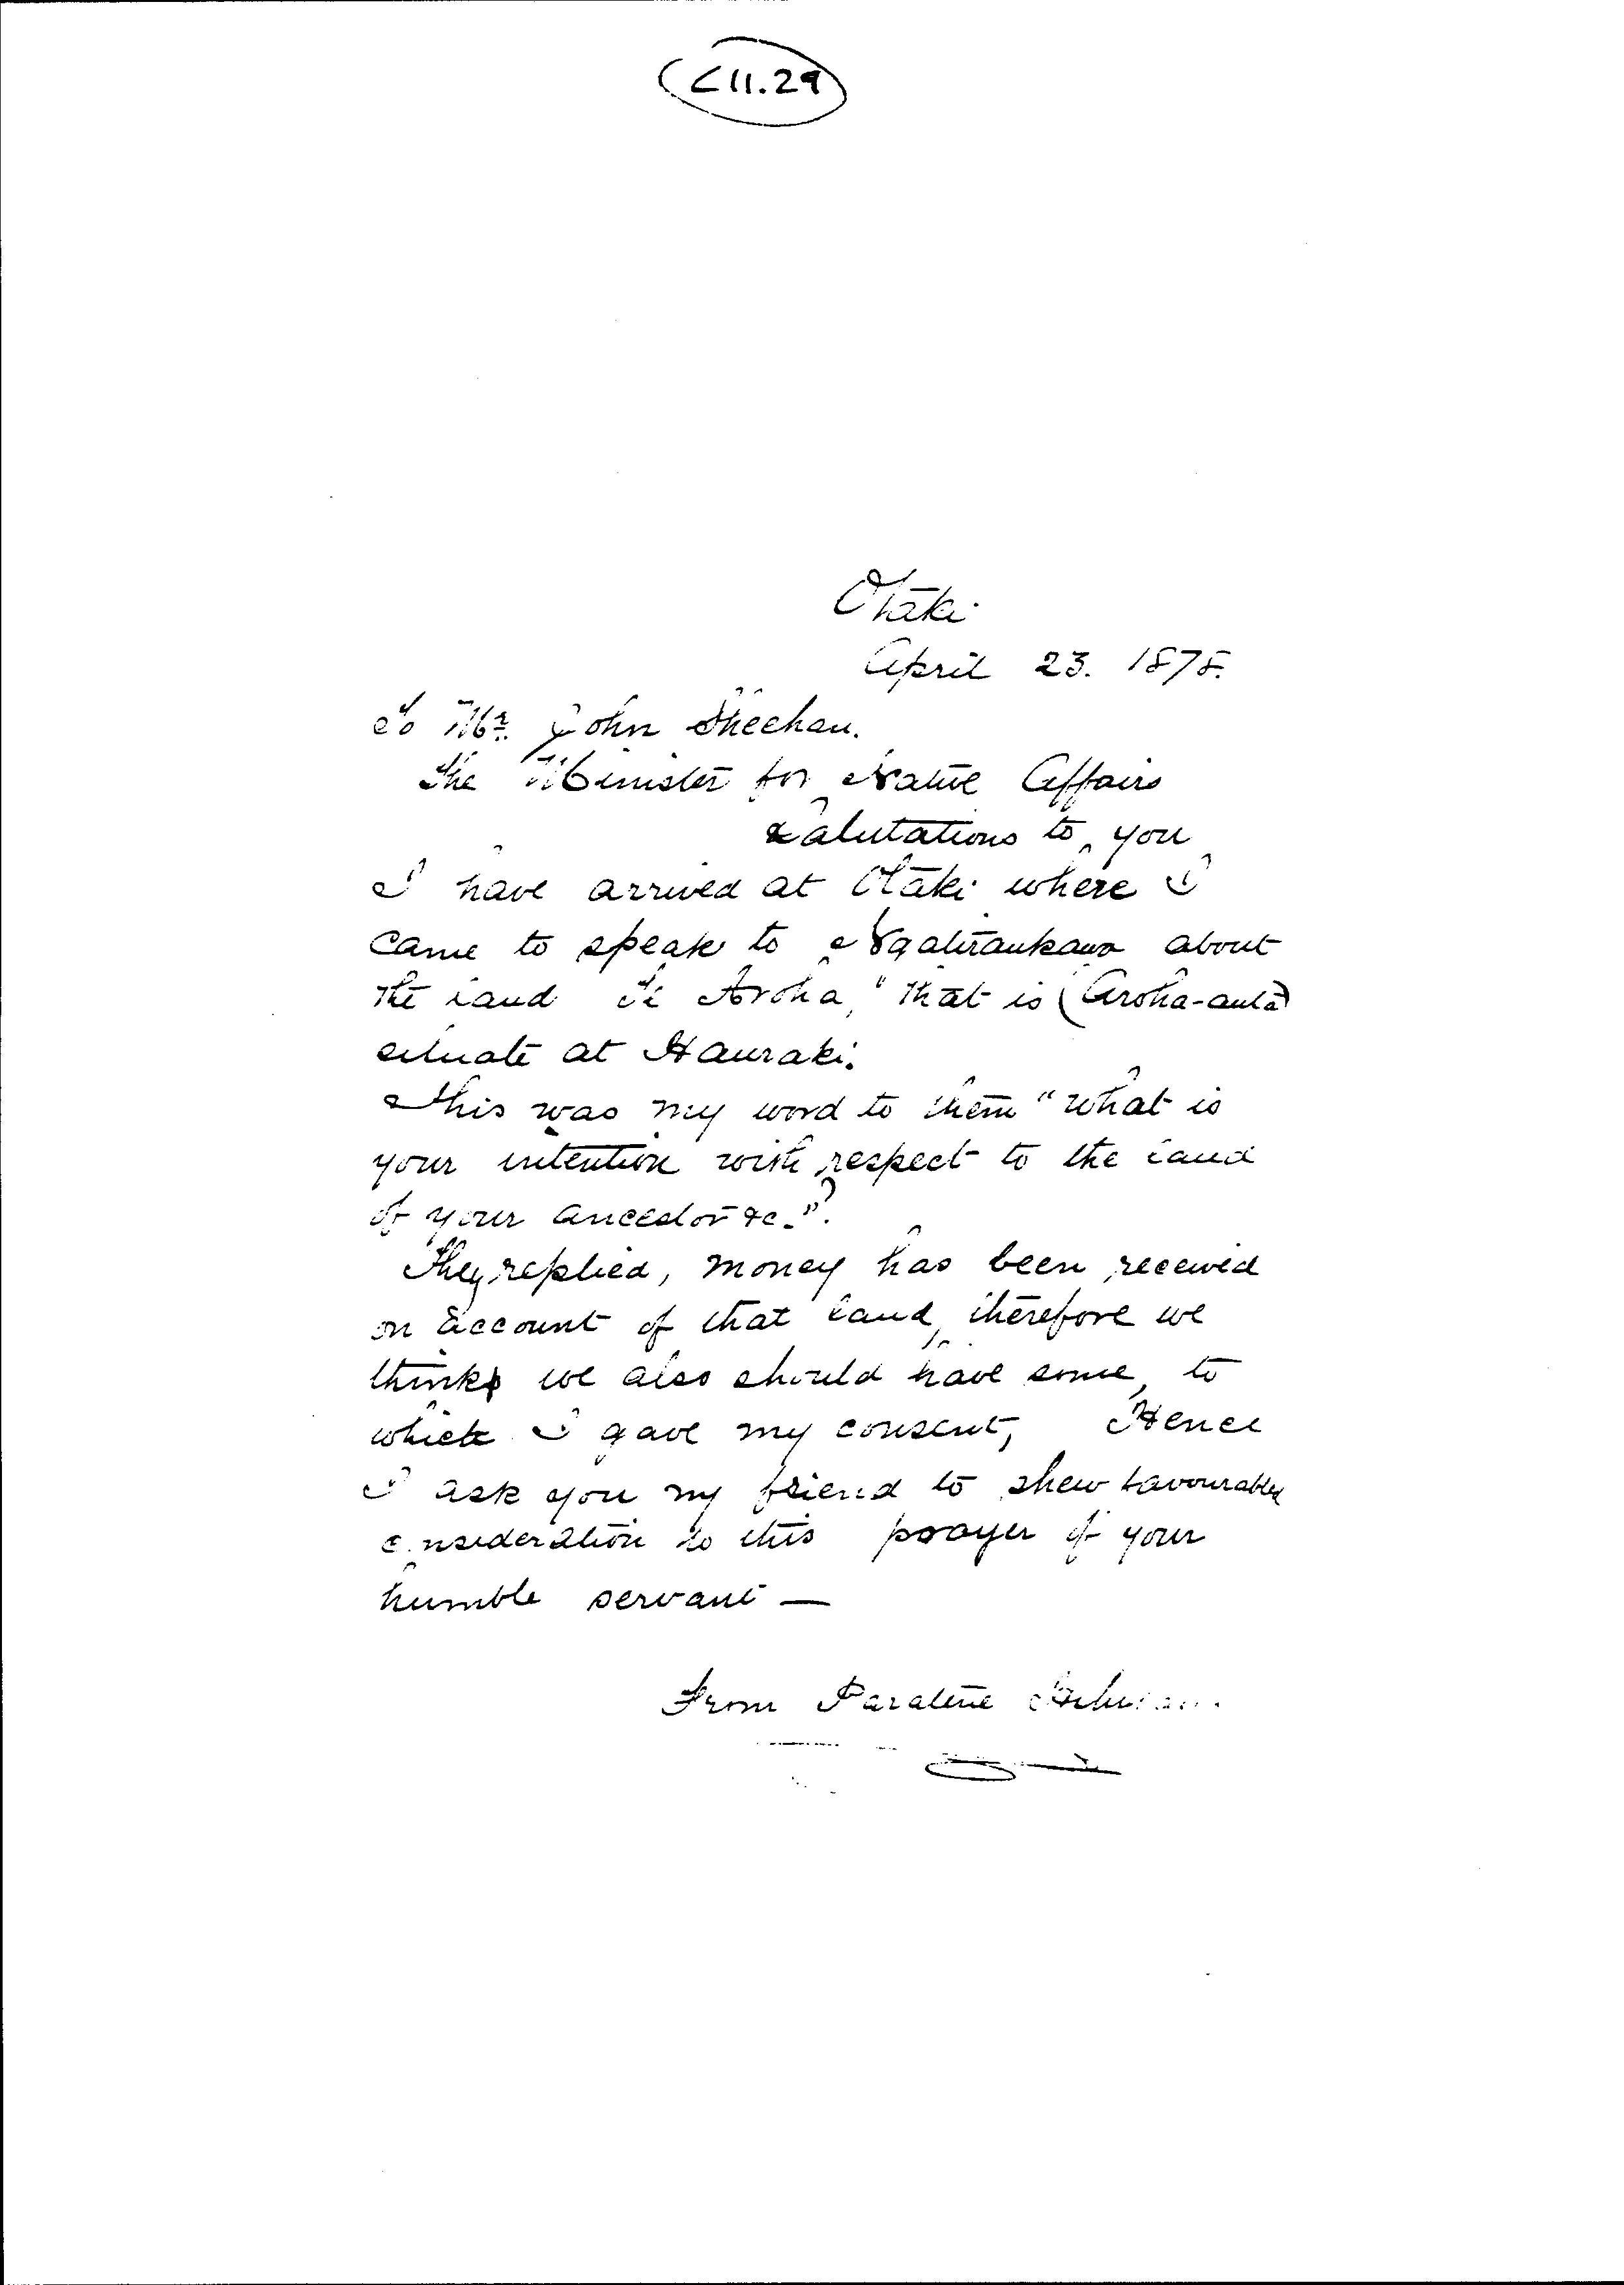 C11.29
Otaki
April 23. 1878.
To Mr. John Sheehan.
The Minister for Native Affairs
Salutations to you
I have arrived at Otaki where I
came to speak to Ngatiraukawa about
the land Te Aroha," that is (Aroha-auta)
situate at Hauraki.
This was my word to them "What is
your intention with respect to the land
of your ancestor &c."?
They replied, money has been received
on account of that land, therefore we
think we also should have some, to
which I gave my consent, Hence
I ask you my friend to shew favourably
consideration to this prayer of your
humble servant —
From Paratene